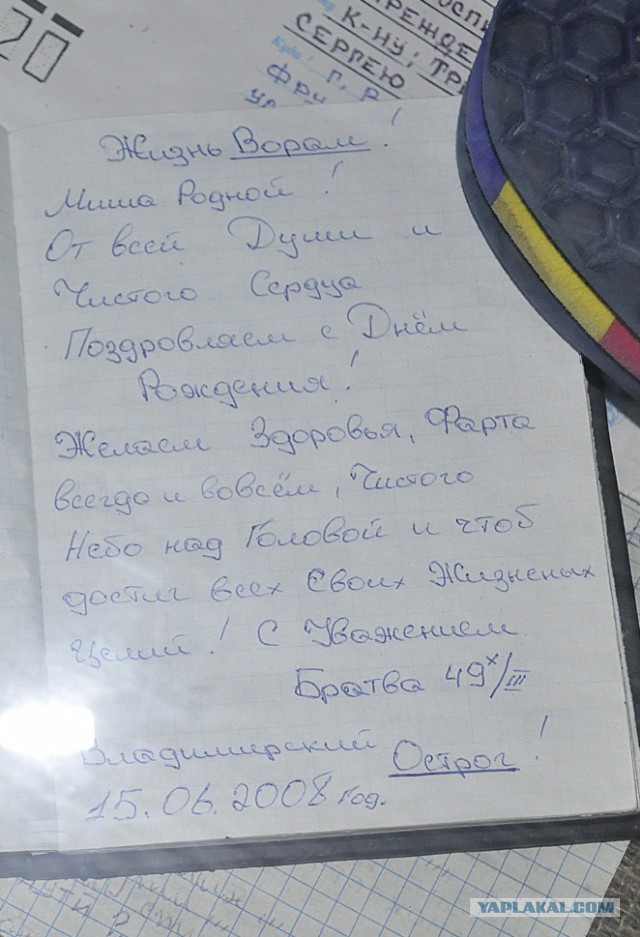 20
К-НУ; ТР
СЕРГЕЮ
Куда
Жизнь Ворам!
Миша Родной!
От всей Души и
Чистого Сердца
Поздровляем с Днём
Рождения!
Желаем Здоровья, Фарта
всегда и вовсём, Чистого
Небо над Головой и чтоб
достиг всех Своих Жизненых
целий! С Уважением
Братва 49ˣ/III
Владимирский Острог!
15.06.2008 год.
YAPLAKAL.COM